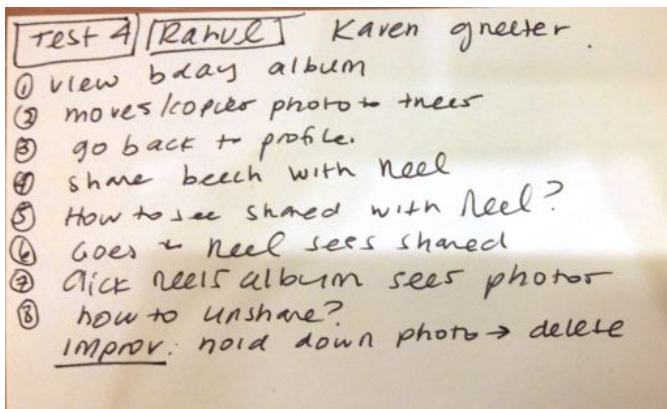 Test 4 Rahul Karen greeter.
① view bday album
② moves/copies photo to trees
③ go back to profile.
④ share beech with Neel
⑤ How to see shared with Neel?
⑥ Goes to Neel sees shared
⑦ Click neels album sees photos
⑧ how to unshare?
Improv: hold down photo → delete